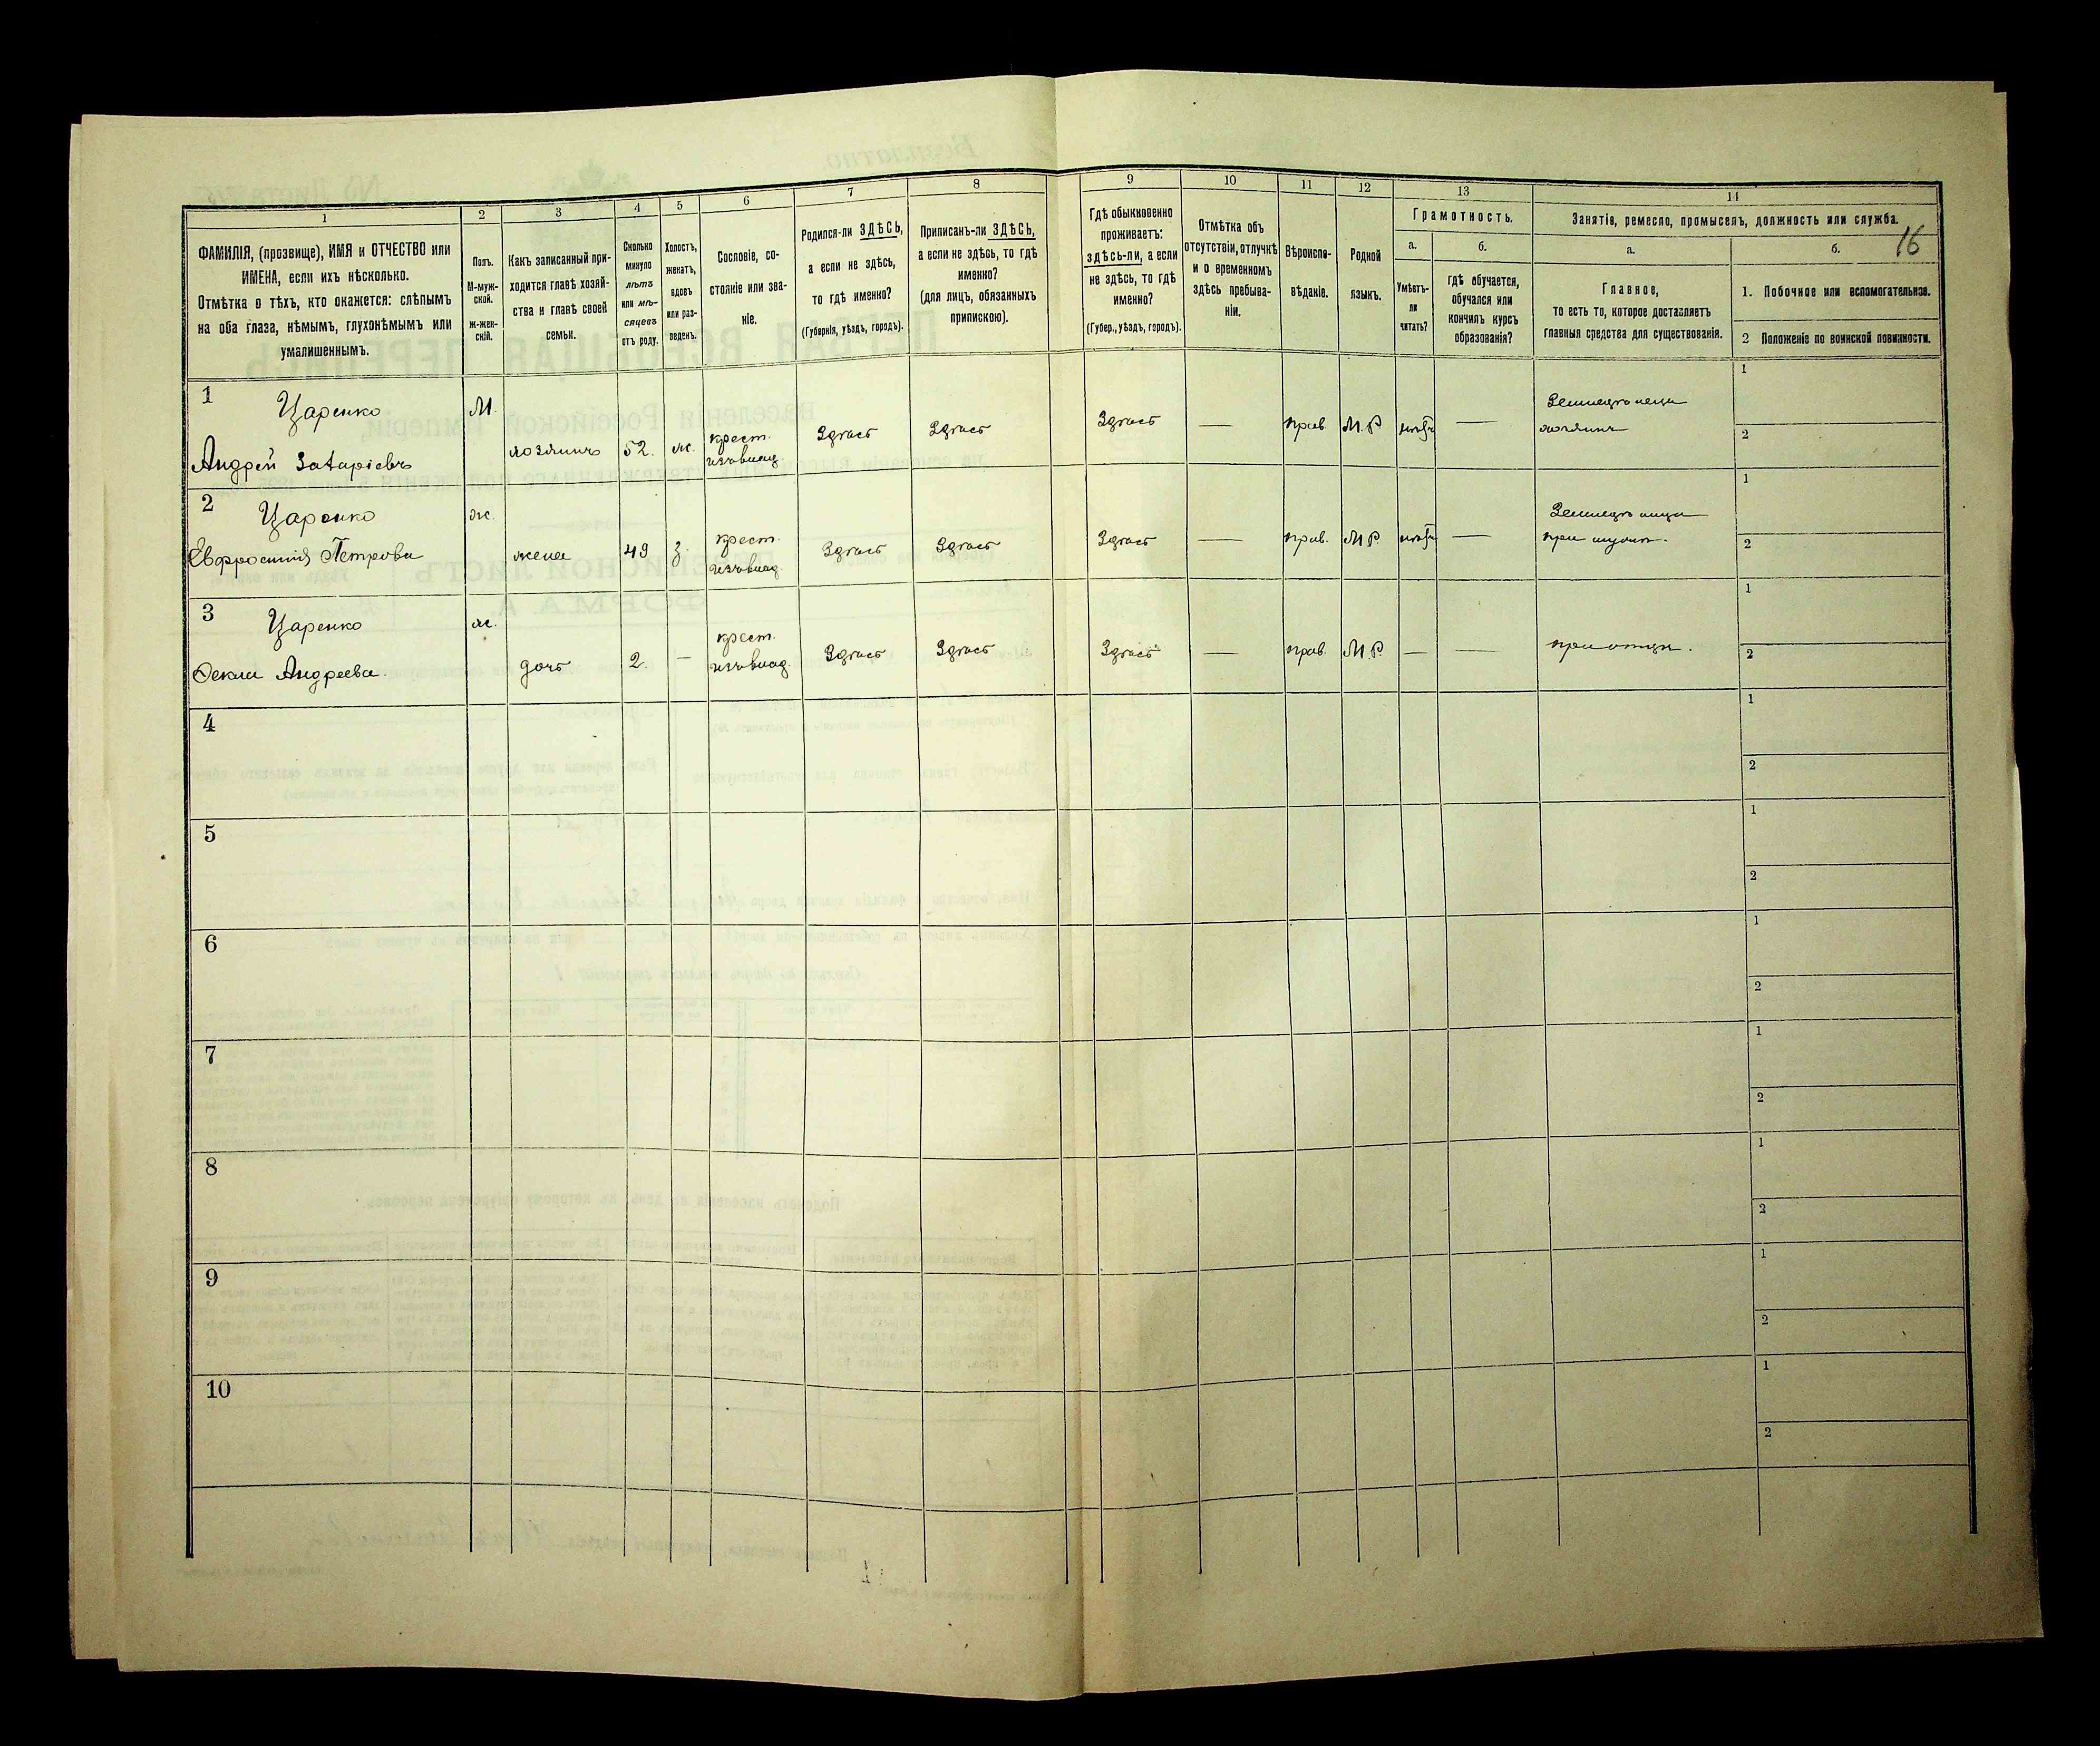 16
1
2
3
4
5
6
7
8
9
10
11
12
13
14
ФАМИЛІЯ, (прозвище), ИМЯ и ОТЧЕСТВО или
ИМЕНА, если ихъ нѣсколько.
Отмѣтка о тѣхъ, кто окажется: слѣпымъ
на оба глаза, нѣмымъ, глухонѣмымъ или
умалишеннымъ.
Полъ.
М-муж-
ской.
ж-жен-
скій.
Какъ записанный при-
ходится главѣ хозяй-
ства и главѣ своей
семьи.
Сколько
минуло
лѣтъ
или мѣ-
сяцевъ
отъ роду.
Холостъ,
женатъ,
вдовъ
или раз-
веденъ.
Сословіе, со-
стояніе или зва-
ніе.
Родился-ли ЗДѢСЬ,
а если не здѣсь,
то гдѣ именно?
(Губернія, уѣздъ, городъ).
Приписанъ-ли ЗДѢСЬ,
а если не здѣсь, то гдѣ
именно?
(для лицъ, обязанныхъ
припискою).
Гдѣ обыкновенно
проживаетъ:
здѣсь-ли, а если
не здѣсь, то гдѣ
именно?
(Губер., уѣздъ, городъ).
Отмѣтка объ
отсутствіи, отлучкѣ
и о временномъ
здѣсь пребыва-
ніи.
Вѣроиспо-
вѣданіе.
Родной
языкъ.
Грамотность.
а.
Умѣетъ-
ли
читать?
б.
гдѣ обучается,
обучался или
кончилъ курсъ
образованія?
Занятія, ремесло, промыселъ, должность или служба.
а.
Главное,
то есть то, которое доставляетъ
главныя средства для существованія.
б.
1. Побочное или вспомогательное.
2 Положеніе по воинской повинности.
1
Царенко
Андрей Захаріевъ
М.
хозяинъ
52.
ж.
крест.
изъ влад.
Здѣсь
Здѣсь
Здѣсь
—
прав.
М.Р.
нѣтъ
—
хозяинъ
1
2
2
Царенко
Евфросинія Петрова
ж.
жена
49
з.
крест.
изъ влад.
Здѣсь
Здѣсь
Здѣсь
—
прав.
М.Р.
нѣтъ
—
при мужѣ.
1
2
3
Царенко
Ѳекла Андреева.
ж.
дочь
2.
—
крест.
изъ влад.
Здѣсь
Здѣсь
Здѣсь
—
прав.
М.Р.
—
—
при отцѣ.
1
2
4
1
2
5
1
2
6
1
2
7
1
2
8
1
2
9
1
2
10
1
2